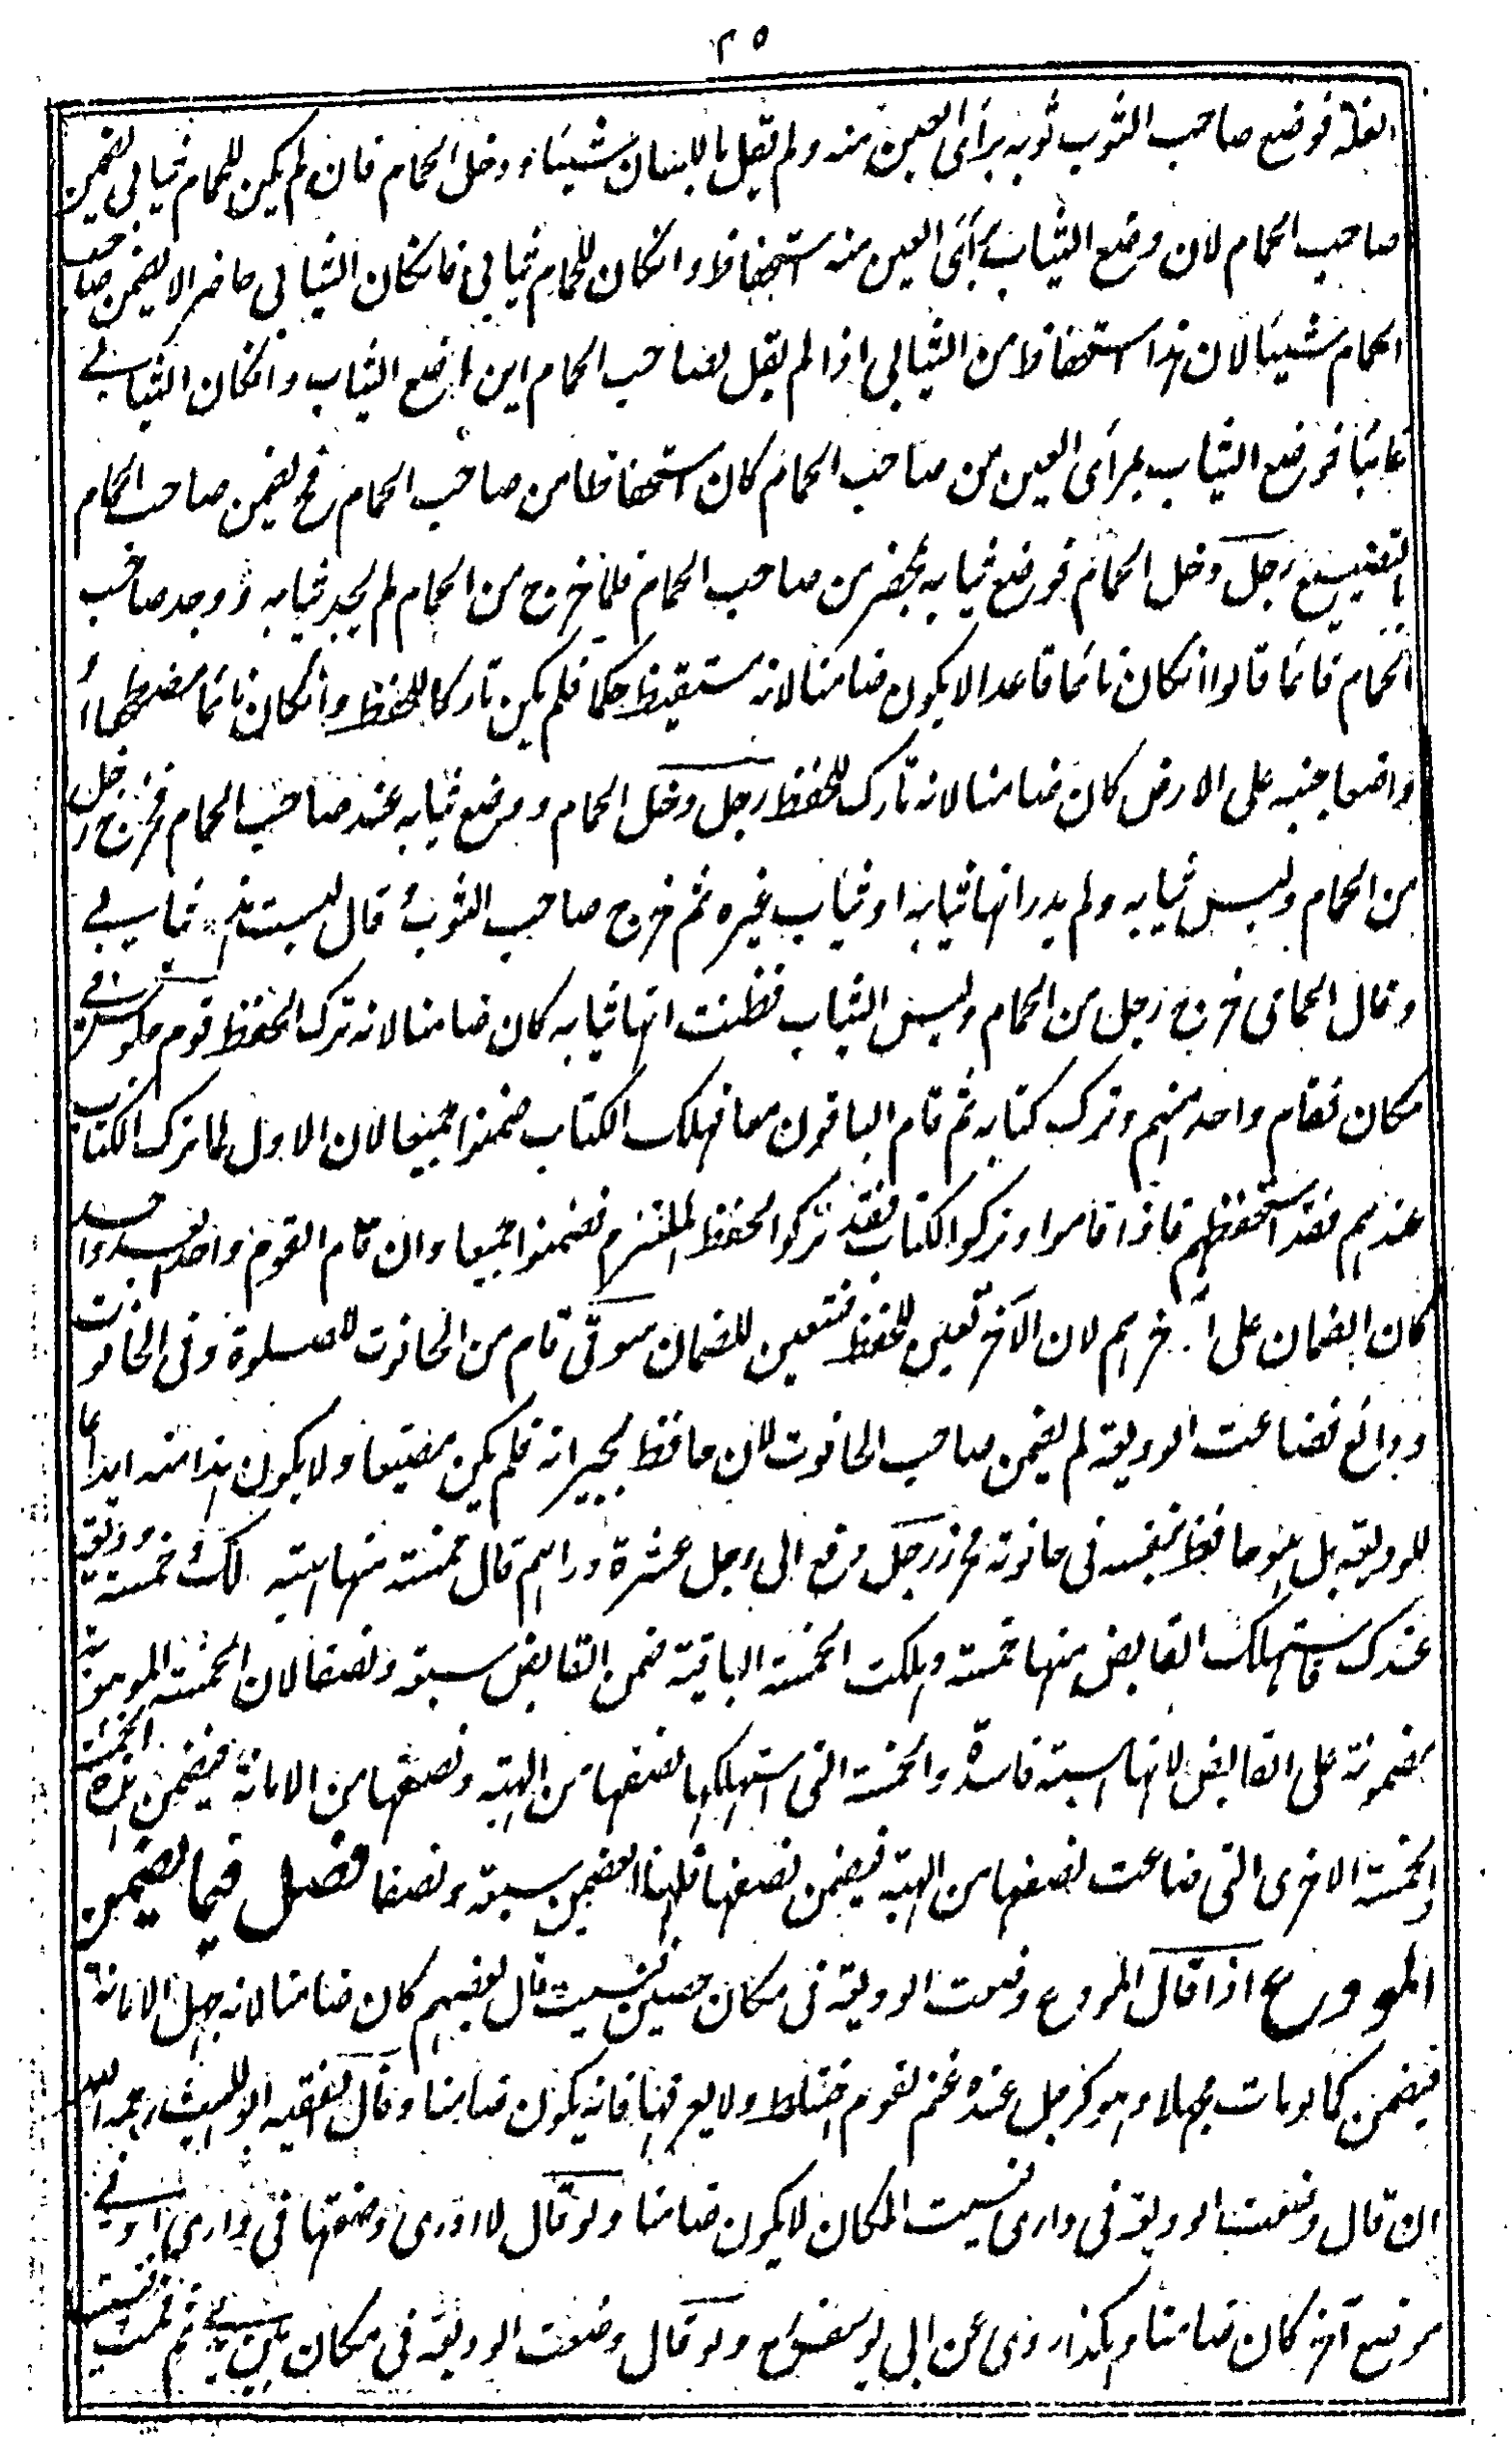 ٢٥
الغلة فوضع صاحب الثوب ثوبه برأى العين منه ولم يقل باللسان شيئا ودخل الحمام فان لم يكن للحمام ثيابى يضمن
صاحب الحمام لان وضع الثياب بمرأى العين منه استحفاظ وانكان للحمام ثيابى فانكان الثيابى حاضرا لا يضمن صاحب
الحمام شيئا لان هذا استحفاظ من الثيابى اذا لم يقل لصاحب الحمام اين اضع الثياب وانكان الثيابى
غائبا فوضع الثياب بمرأى العين من صاحب الحمام كان استحفاظا من صاحب الحمام فح يضمن صاحب الحمام
بالتضييع رجل دخل الحمام فوضع ثيابه بمحضر من صاحب الحمام فلما خرج من الحمام لم يجد ثيابه ووجد صاحب
الحمام نائما قالوا انكان نائما قاعدا لا يكون ضامنا لانه مستيقظ حكما فلم يكن تاركا للحفظ وانكان نائما مضطجعا او
واضعا جنبه على الارض كان ضامنا لانه تارك للحفظ رجل دخل الحمام ووضع ثيابه عند صاحب الحمام فخرج رجل
من الحمام ولبس ثيابه ولم يدر انها ثيابه او ثياب غيره ثم خرج صاحب الثوب وقال ليست هذه ثيابى
وقال الحمامى خرج رجل من الحمام ولبس الثياب فظننت انها ثيابه كان ضامنا لانه ترك الحفظ قوم جلوس فى
مكان فقام واحد منهم وترك كتابه ثم قام الباقون معا فهلك الكتاب ضمنوا جميعا لان الاول لما ترك الكتاب
عندهم فقد استحفظهم فاذا قاموا وتركوا الكتاب فقد تركوا الحفظ الملتزم فضمنوا جميعا وان قام القوم واحدا بعد واحد
كان الضمان على آخرهم لان الآخر تعين للحفظ فتعين للضمان سوقى قام من الحانوت للصلوة وفى الحانوت
ودائع فضاعت الوديعة لم يضمن صاحب الحانوت لانه حافظ بجيرانه فلم يكن مضيعا ولا يكون هذا منه ايداعا
للوديعة بل هو حافظ بنفسه فى حانوته محرز رجل دفع الى رجل عشرة دراهم قال خمسة منها هبة لك وخمسة وديعة
عندك فاستهلك القابض منها خمسة وهلكت الخمسة الباقية ضمن القابض سبعة ونصفا لان الخمسة الموهوبة
مضمونة على القابض لانها هبة فاسدة والخمسة التى استهلكها نصفها من الهبة ونصفها من الامانة فيضمن هذه الخمسة
والخمسة الاخرى التى ضاعت نصفها من الهبة فيضمن نصفها فلهذا يضمن سبعة ونصفا فصل فيما يضمن
المودع اذا قال المودع وضعت الوديعة فى مكان حصين فنسيت قال بعضهم كان ضامنا لانه جهل الامانة
فيضمن كما لو مات مجهلا وهو كرجل عنده غنم لقوم اختلط ولا يعرفها فانه يكون ضامنا وقال الفقيه ابو الليث رحمه الله
ان قال وضعت الوديعة فى دارى فنسيت المكان لا يكون ضامنا ولو قال لا ادرى وضعتها فى دارى او فى
موضع آخر كان ضامنا وهكذا روى عن ابى يوسف ولو قال وضعت الوديعة فى مكان بين يدى ثم قمت فنسيت